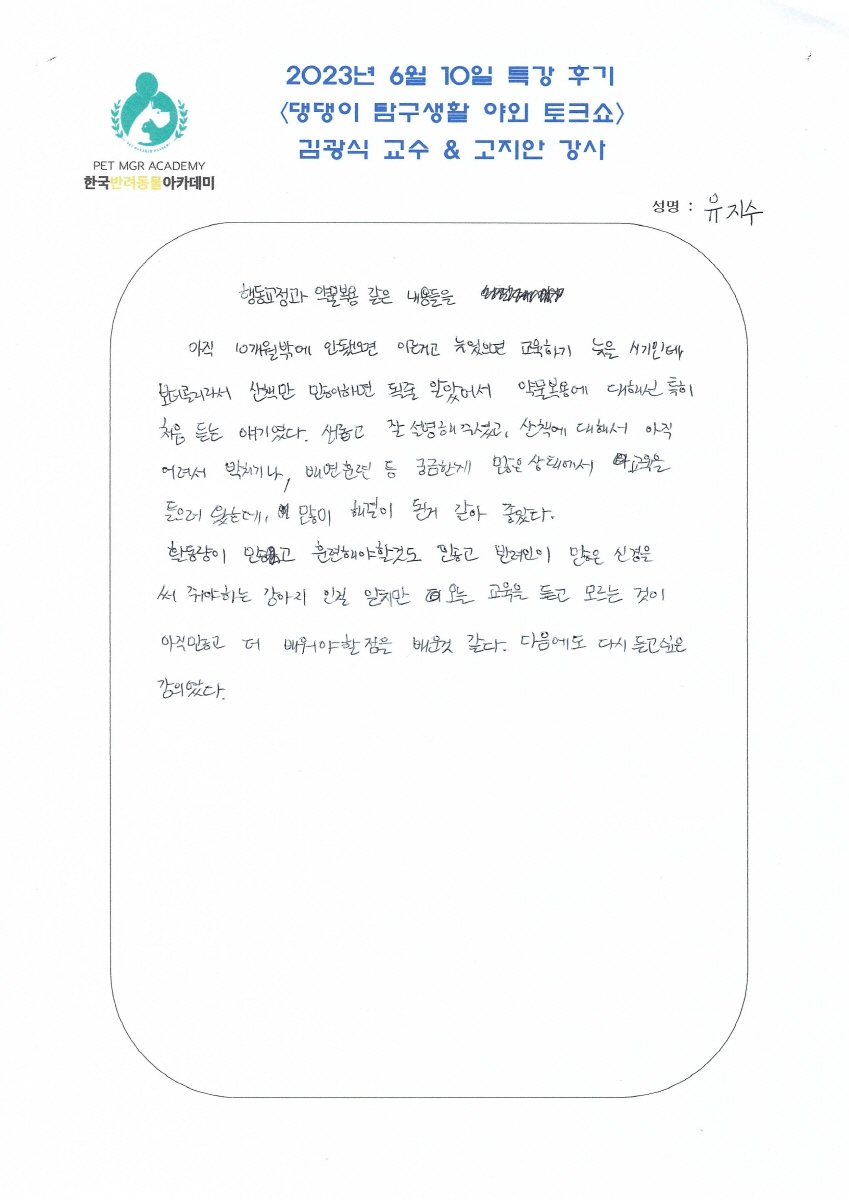 2023년 6월 10일 특강 후기
<댕댕이 탐구생활 야외 토크쇼>
김광식 교수 & 고지안 강사
PET MGR ACADEMY
한국반려동물아카데미
성명 : 유지수
행동교정과 약물복용 같은 내용들을
아직 10개월밖에 안됐으면 이르고 늦었으면 교육하기 늦을 시기인데
보더콜리라서 산책만 많이하면 될줄 알았어서 약물복용에 대해선 특히
처음 듣는 얘기였다. 새롭고 잘 설명해주셨고, 산책에 대해서 아직
어려서 박치기나, 배변훈련 등 궁금한게 많은 상태에서 교육을
들으러 왔는데, 많이 해결이 된거 같아 좋았다.
활동량이 많고 훈련해야할것도 많고 반려인이 많은 신경을
써 줘야하는 강아지 인걸 알지만 오늘 교육을 듣고 모르는 것이
아직많고 더 배워야할 점을 배운것 같다. 다음에도 다시 듣고싶은
강의였다.